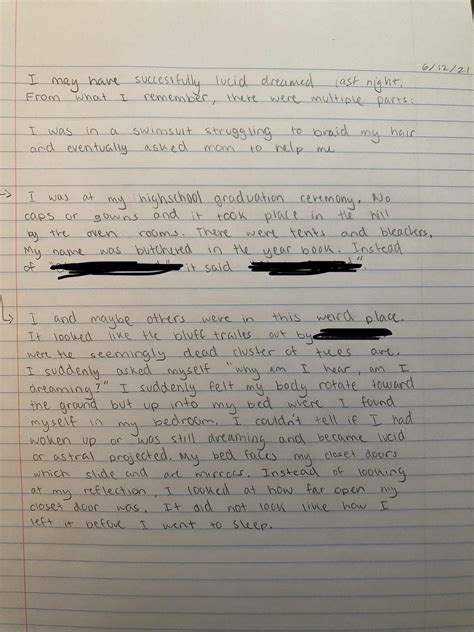 6/12/21
I may have successfully lucid dreamed last night.
From what I remember, there were multiple parts:
I was in a swimsuit struggling to braid my hair
and eventually asked mom to help me
→ I was at my highschool graduation ceremony. No
caps or gowns and it took place in the hill
by the oven rooms. There were tents and bleachers.
My name was butchered in the year book. Instead
of " " it said " ".
I and maybe others were in this weird place.
It looked like the bluff trailes out by
were the seemingly dead cluster of trees are.
I suddenly asked myself "why am I hear, am I
dreaming?" I suddenly felt my body rotate toward
the ground but up into my bed were I found
myself in my bedroom. I couldn't tell if I had
woken up or was still dreaming and became lucid
or astral projected. My bed faces my closet doors
which slide and are mirrors. Instead of looking
at my reflection, I looked at how far open my
closet door was. It did not look like how I
left it before I went to sleep.